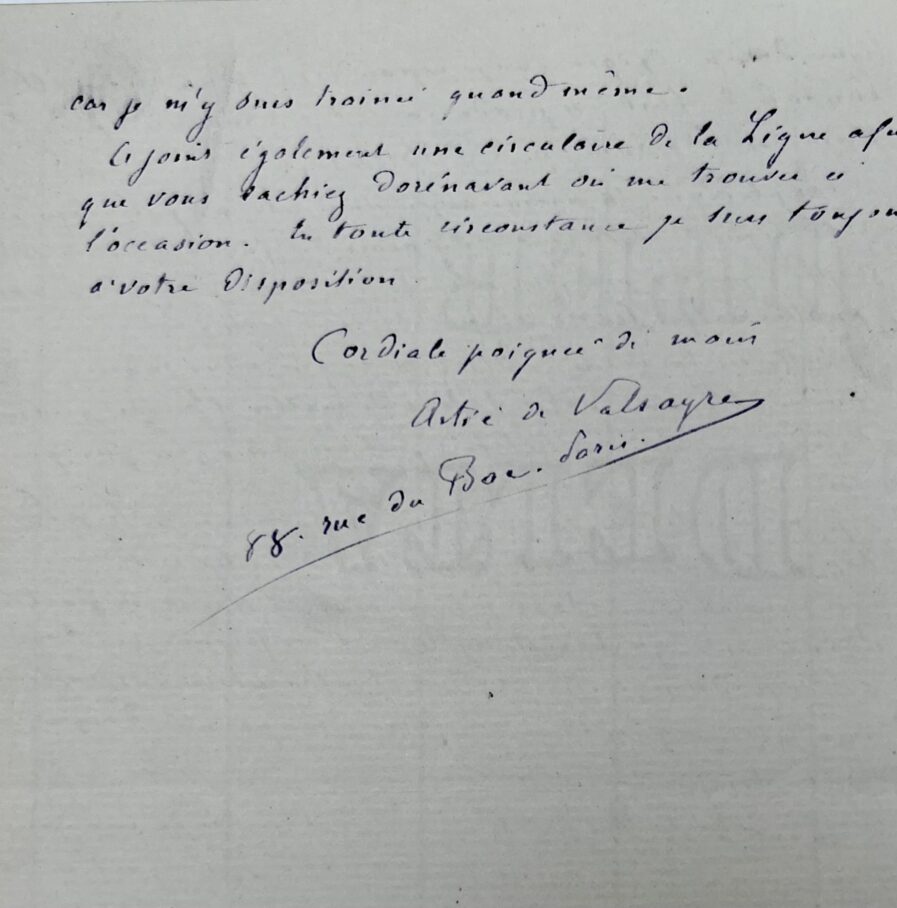 car je m'y suis trainé quand même.
Ci joint également une circulaire de la Ligue afin
que vous sachiez dorénavant où me trouver à
l'occasion. En toute circonstance je suis toujou
à votre disposition
Cordiale poignée de main
Astié de Valsayre
88. rue du Bac. Paris.